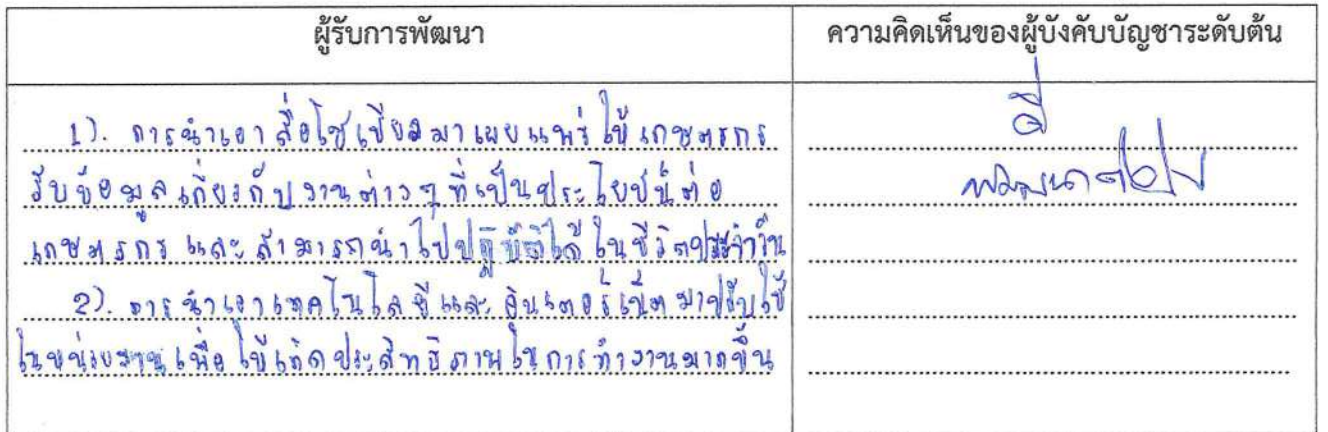 ผู้รับการพัฒนา
ความคิดเห็นของผู้บังคับบัญชาระดับต้น
1). การนำเอาสื่อโซเชียลมาเผยแพร่ให้เกษตรกร
รับข้อมูลเกี่ยวกับงานต่างๆที่เป็นประโยชน์ต่อ
เกษตรกร และสามารถนำไปปฏิบัติได้ในชีวิตประจำวัน
2). การนำเอาเทคโนโลยีและอินเตอร์เน็ตมาปรับใช้
ในหน่วยงานเพื่อให้เกิดประสิทธิภาพในการทำงานมากขึ้น
ดี